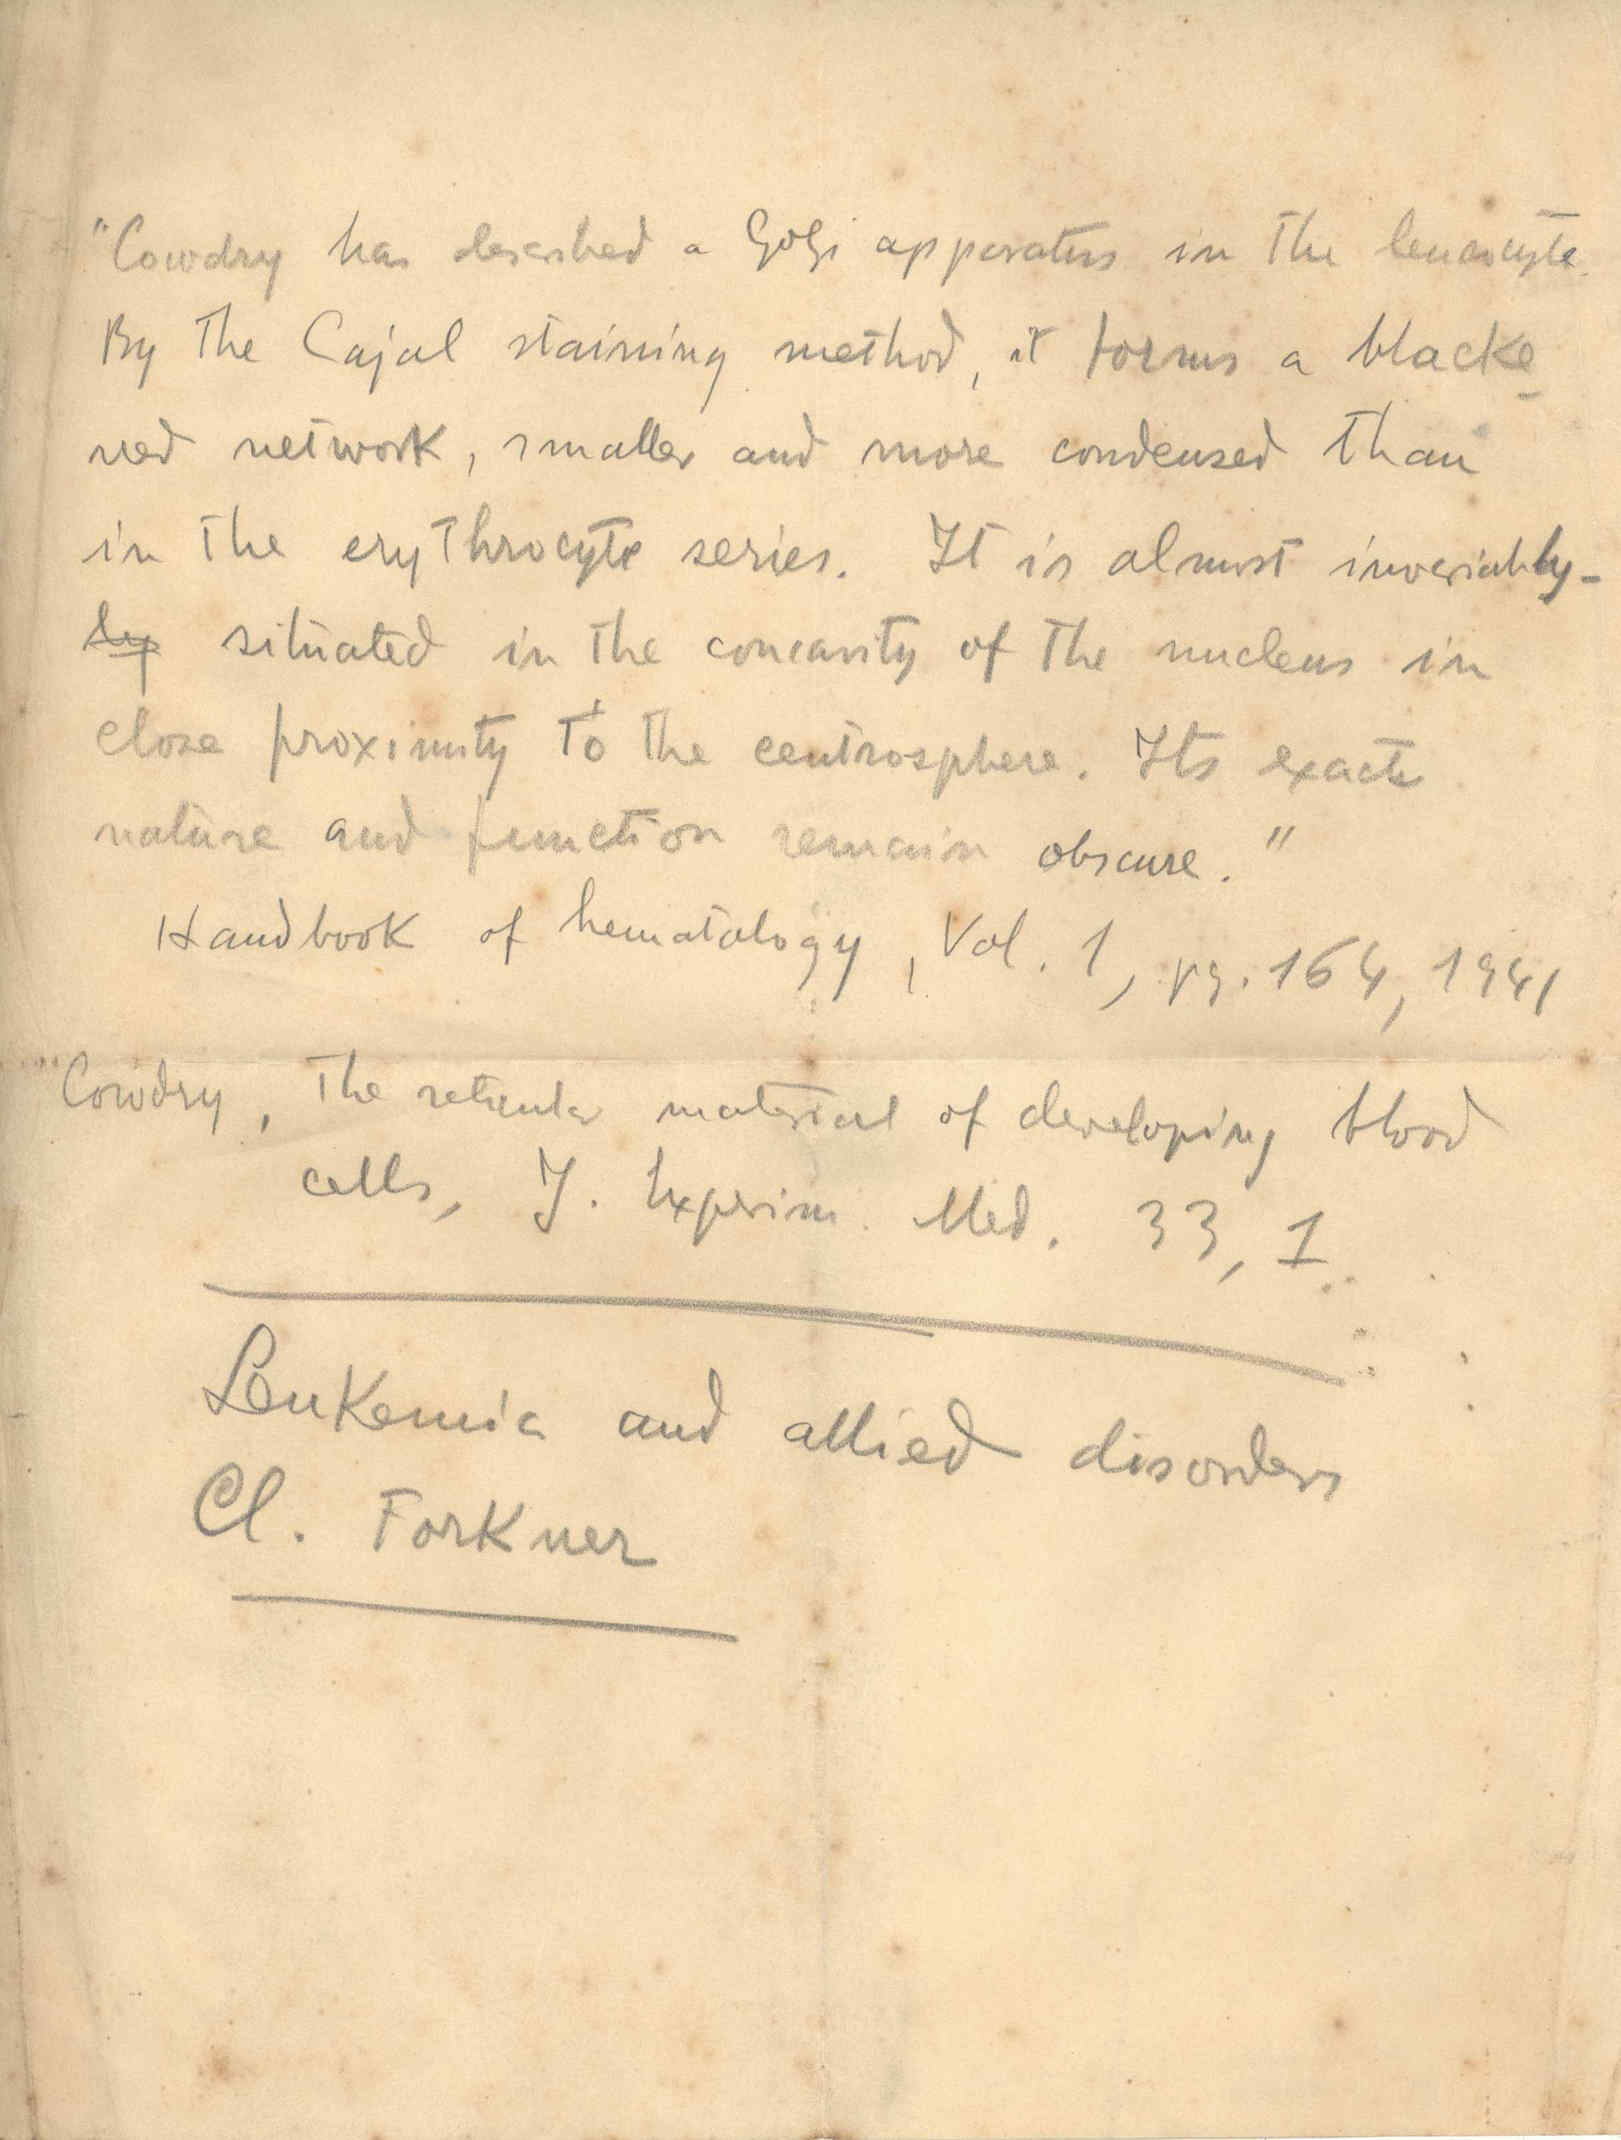 "Cowdry has described a Golgi apparatus in the leucocyte.
By the Cajal staining method, it forms a blacke
ned network, smaller and more condensed than
in the erythrocyte series. It is almost invariably-
ly situated in the concavity of the nucleus in
close proximity to the centrosphere. Its exact
nature and function remain obscure."
Handbook of hematology, Vol. 1, pg. 164, 1941
Cowdry, The reticular material of developing blood
cells, J. Experim. Med. 33, 1
Leukemia and allied disorders
Cl. Forkner